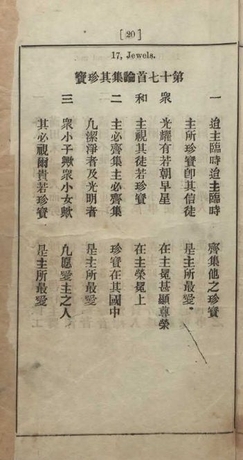 [ 20 ]
17, Jewels.
第十七首論集其珍寶
一 迨主臨時迨主臨時 齊集他之珍寶
主所珍寶卽其信徒 是主所最愛。
衆 光耀有若朝星 在主冕甚顯尊榮
和 主視其徒若珍寶 在主榮冕上
二 主必齊集主必齊集 珍寶在其國中
凡潔淨者及光明者 是主所最愛
三 衆小子歟衆小女歟 凡愿愛主之人
其必視爾貴若珍寶 是主所最愛